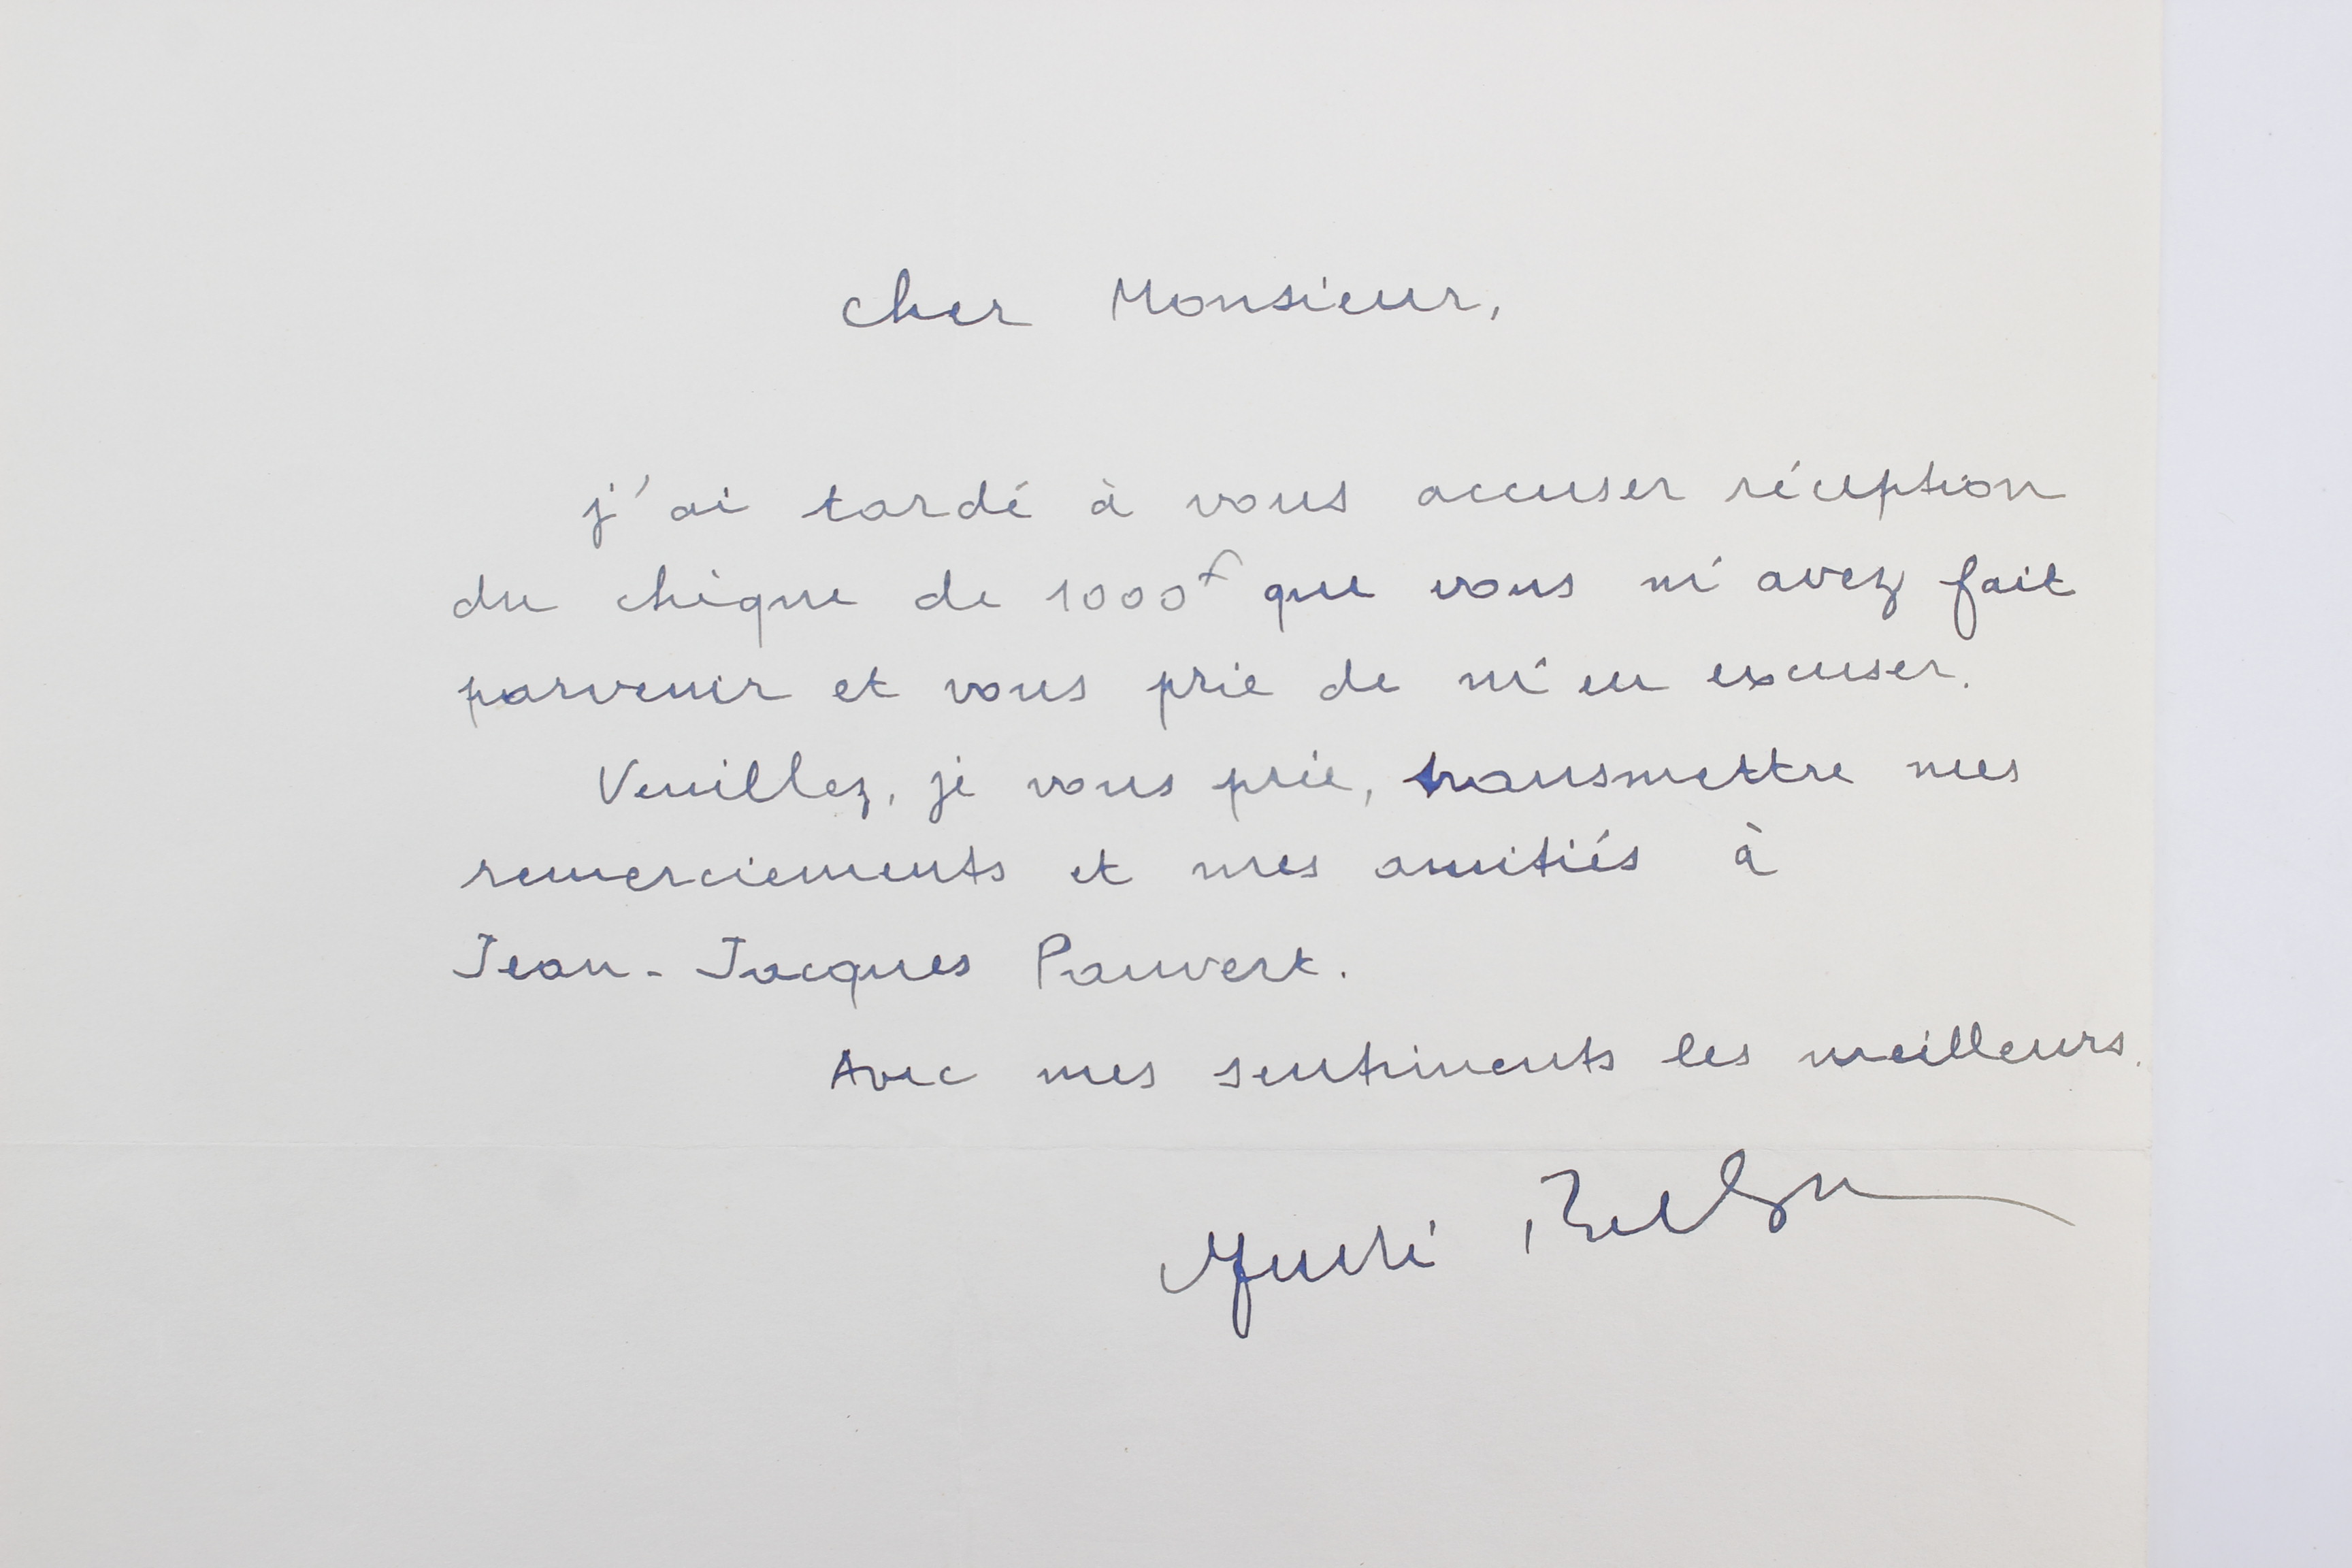 Cher Monsieur,
j'ai tardé à vous accuser réception
du chèque de 1000f que vous m'avez fait
parvenir et vous prie de m'en excuser.
Veuillez, je vous prie, transmettre mes
remerciements et mes amitiés à
Jean-Jacques Pauvert.
Avec mes sentiments les meilleurs.